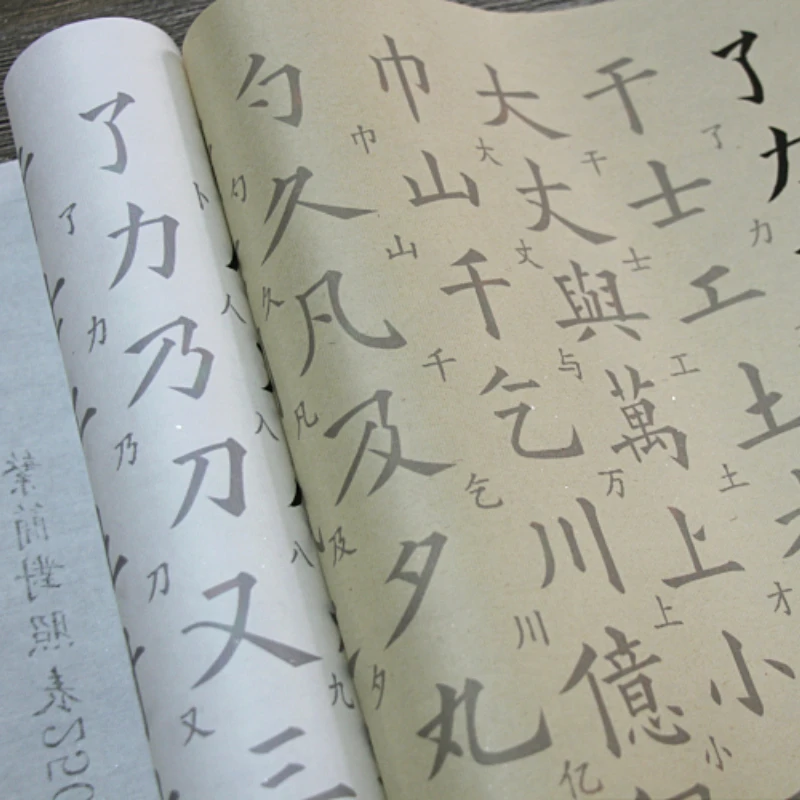 了力
了力
干士工土
干士工土才
大丈與萬上小
大丈与万上小
巾山千乞川億
巾山千乞川亿
勺久凡及夕丸
勺久凡及夕
卜人入八九
了力乃刀又三
了力乃刀又
繁简對照表250